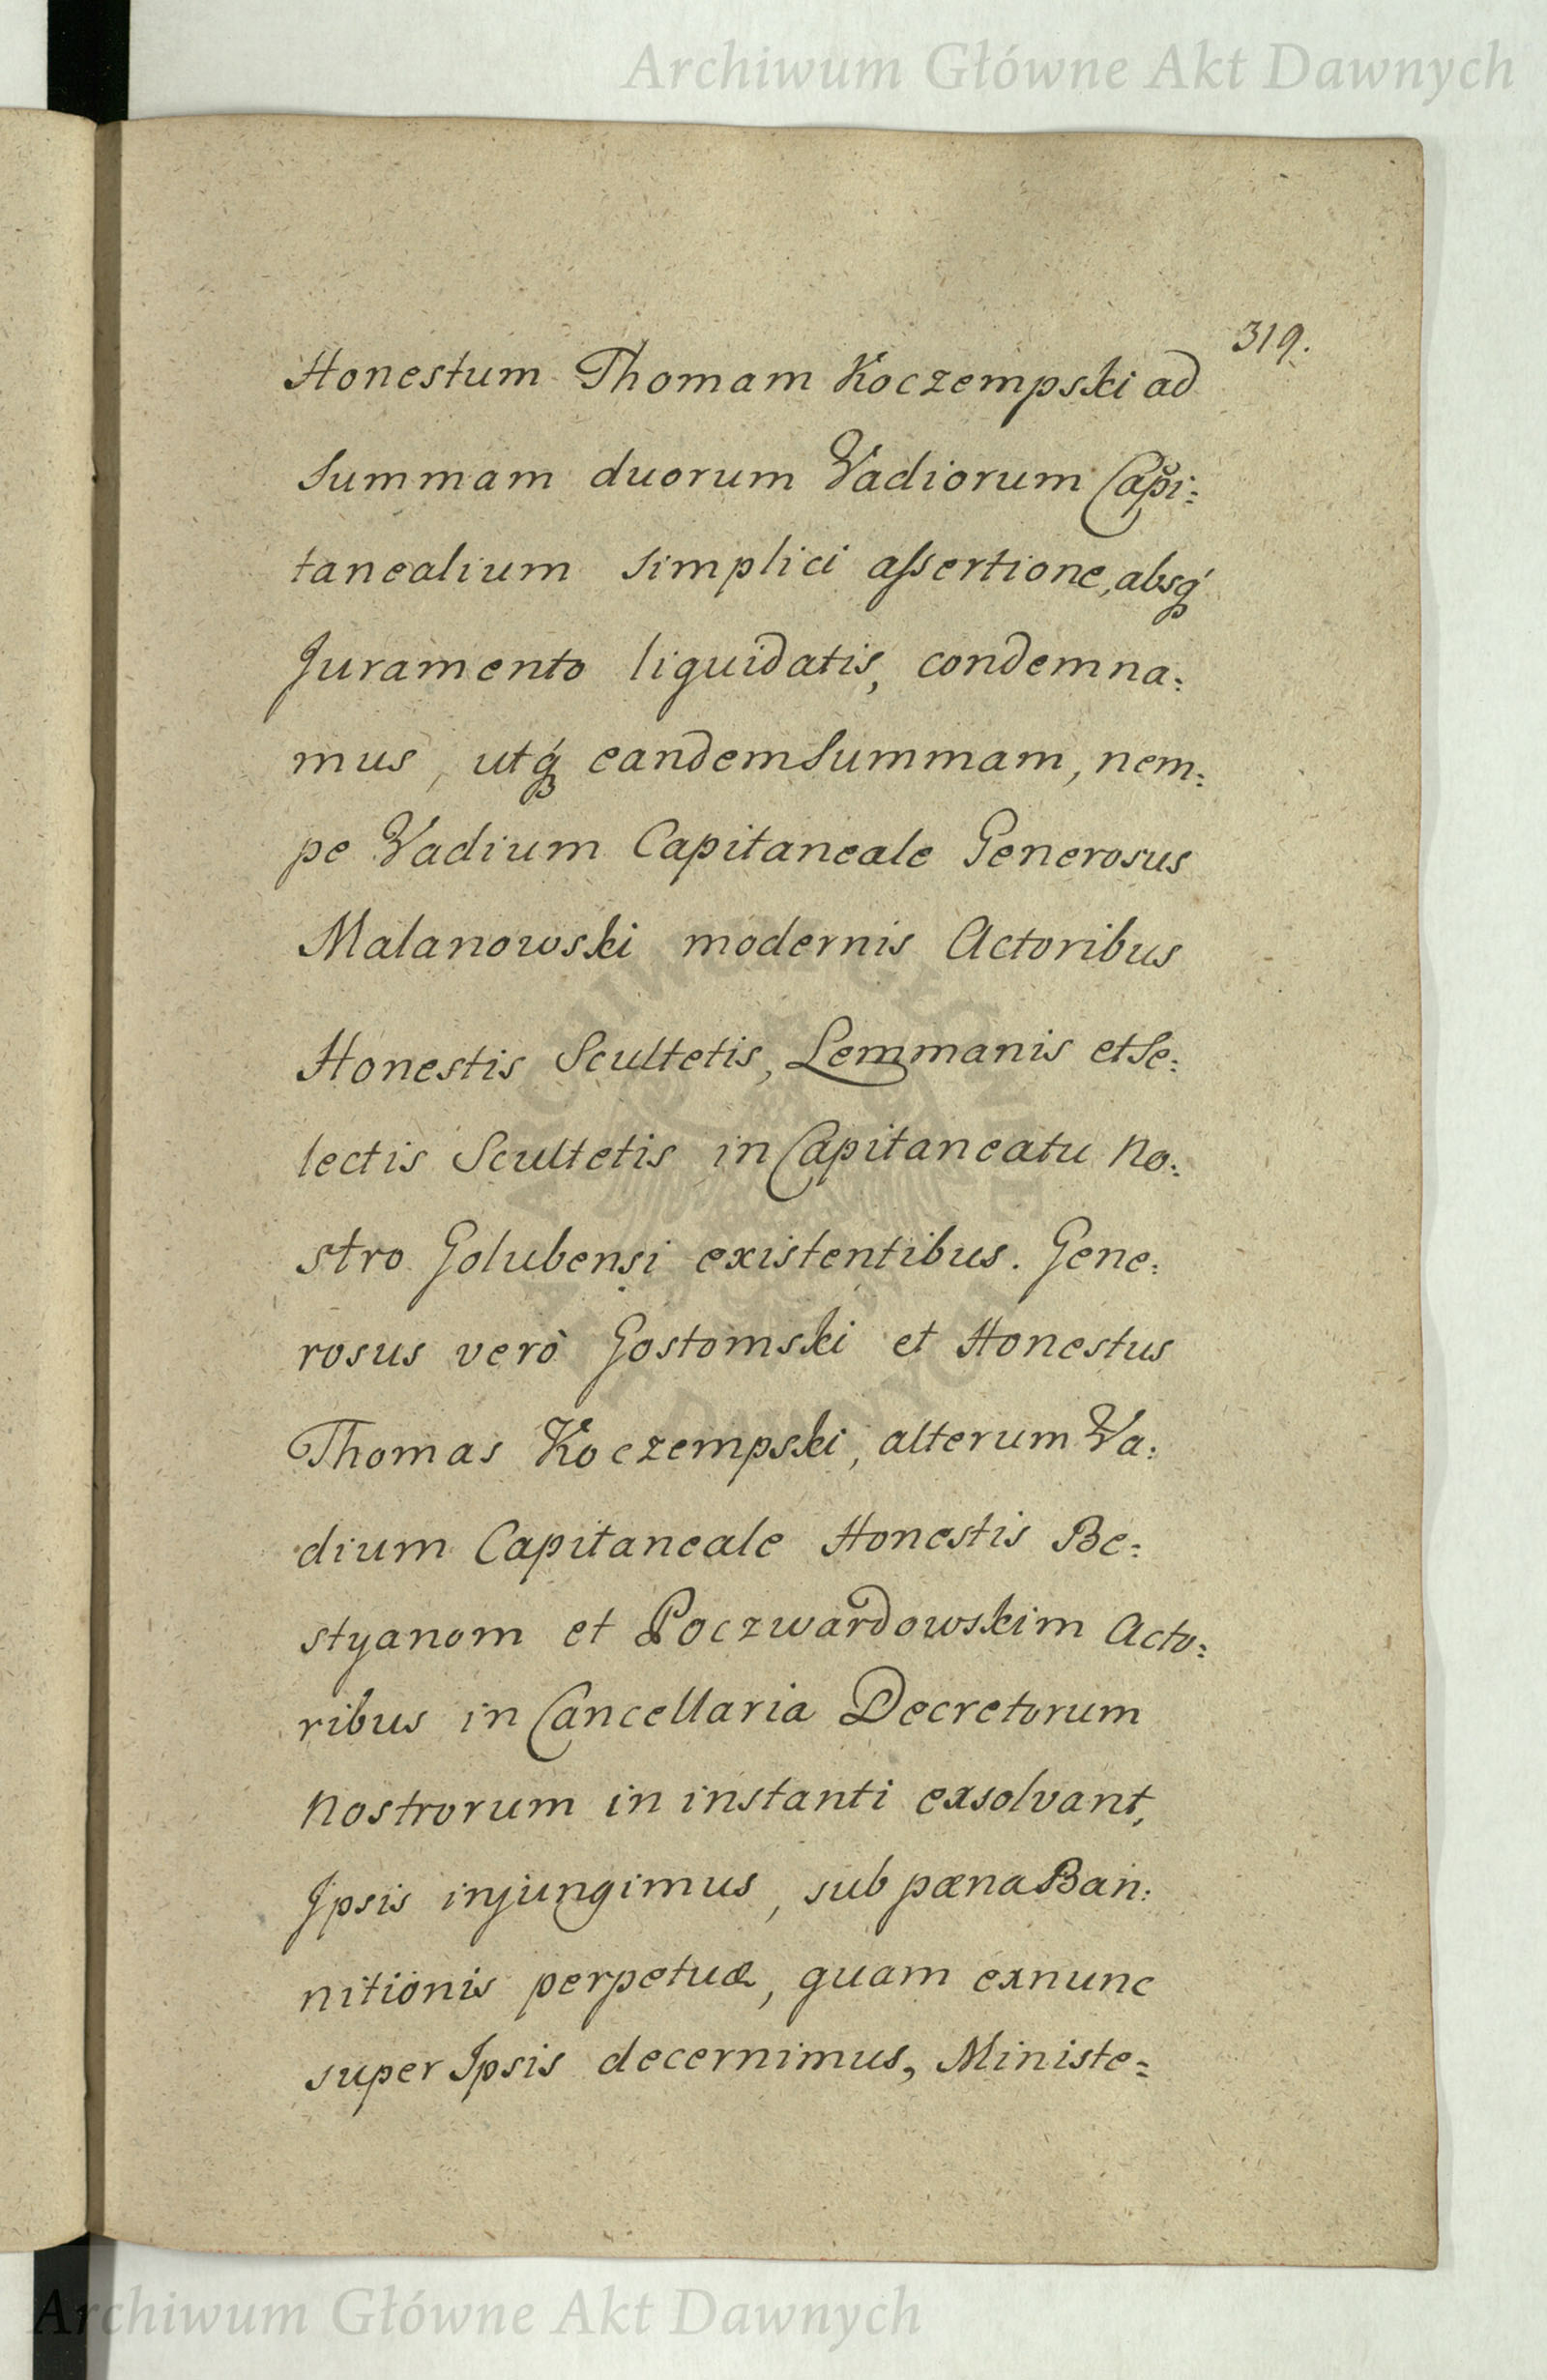 Archiwum Główne Akt Dawnych
319.
Honestum Thomam Koczempski ad
Summam duorum Vadiorum Capi:
tanealium simplici assertione, absq́
Juramento liquidatis, condemna:
mus, utq́ eandem Summam, nem:
pe Vadium Capitaneale Generosus
Malanowski modernis Actoribus
Honestis Scultetis, Lemmanis et Se:
lectis Scultetis in Capitaneatu No:
stro Golubensi existentibus. Gene:
rosus verò Gostomski et Honestus
Thomas Koczempski, alterum Va:
dium Capitaneale Honestis Be:
styanom et Poczwardowskim Acto:
ribus in Cancellaria Decretorum
Nostrorum in instanti exsolvant,
Ipsis injungimus, sub pœna Ban:
nitionis perpetuæ, quam exnunc
super Ipsis decernimus, Ministe:
Archiwum Główne Akt Dawnych